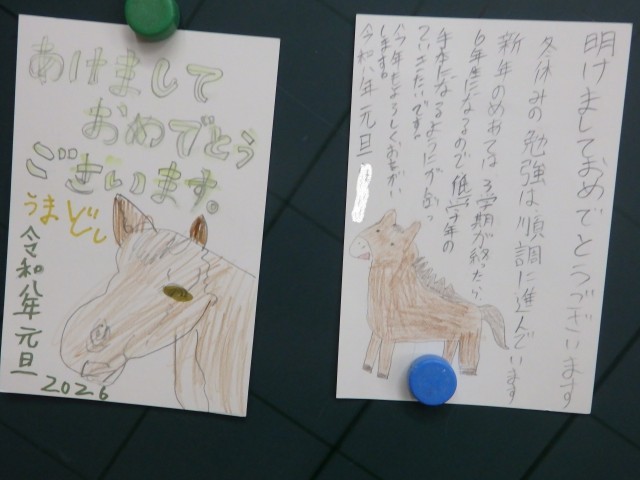 あけまして
おめでとう
ございます。
うまどし
令和八年 元旦
2026
明けましておめでとうございます
冬休みの勉強は順調に進んでいます
新年のめあては、3学期が終わたら、
6年生になるので低学年の
手本になるようにがんばっ
ていきたいです。
今年もよろしくおねがい
します。
令和八年 元旦